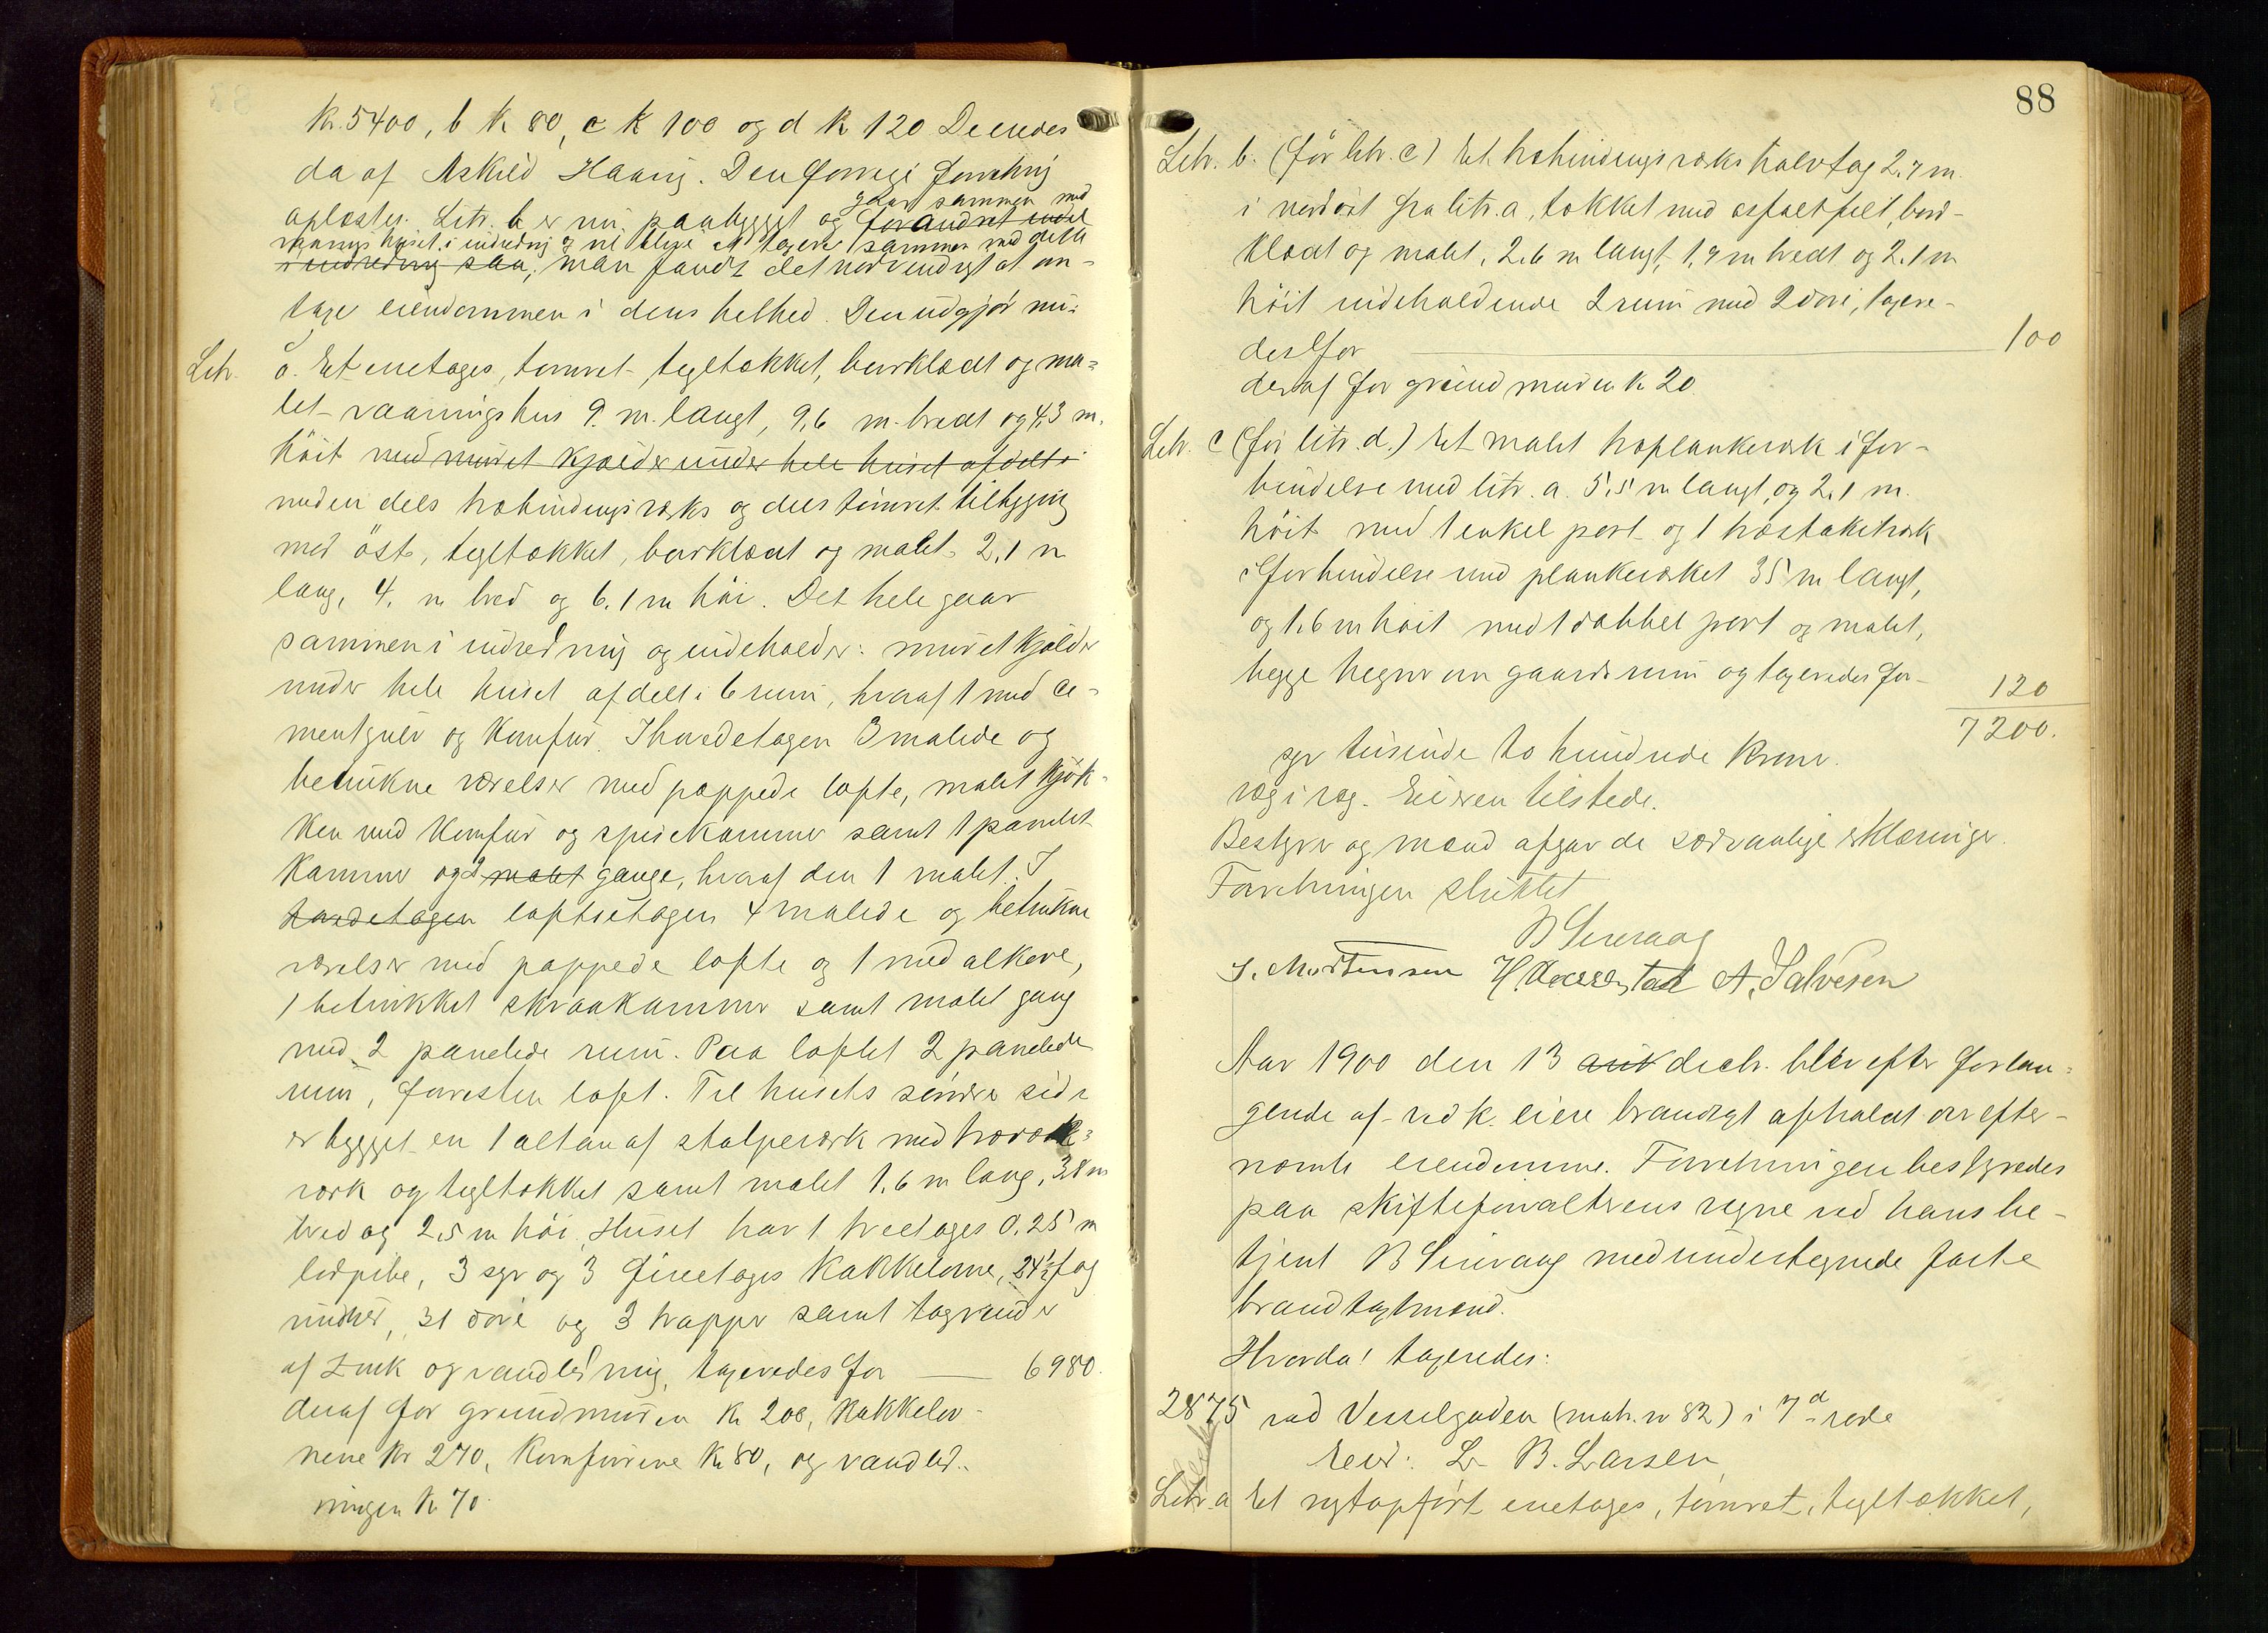 Kr. 5400, b Kr 80, c Kr 100 og d Kr 120. De eiedes
da af Askild Haavig. Den forrige forretning
oplæstes. Litr. b er nu paabygget og gaar sammen med forandret endel
vaaningshuset i indredning og vil blive at taxere sammen med dette
i indredning saa, man fandt det nødvendigt at an-
tage eiendommen i dens helhed. Den udgjør nu:
Litr. a. Et enetages, tømret tegltækket, bordklædt og ma-
let vaaningshus 9. m. langt, 9,6 m. bredt og 4,3 m.
höit med muret kjælder under hele huset afdelt i
med en dels træbindingsværks og dels tømret tilbygning
mod öst, tegltækket, bordklædt og malet 2,1 m
lang, 4. m bred og 6.1 m höi. Det hele gaar
sammen i indredning og indeholder: muret kjelder
under hele huset afdelt i 6 rum, hvoraf 1 med ce-
mentgulv og komfur. I hovedetagen 3 malede og
betrukne værelser med pappede lofte, malet kjök-
ken med komfur og spisekammer samt 1 panelet
kammer og 2 malet gange, hvoraf den 1 malet. I
hovedetagen loftsetagen 4 malede og betrukne
værelser med pappede lofte og 1 med alkove,
1 betrukket skraakammer samt malet gang
med 2 panelede rum. Paa loftet 2 panelede
rum, foresten loft. Til husets søndre side
er bygget en 1 altan af stolpeværk med træræk-
værk og tegltækket samt malet 1.6 m lang, 3.8 m
bred og 2.5 m höi. Huset har 1 treetages 0.25 m
lodpibe, 3 syv og 3 fireetages kakkelovne, 24½ fag
vinduer, 31 döre og 3 trapper samt tagrender
af zink og vandledning, taxeredes for — 6980.
deraf for grundmuren Kr 200, kakkelov-
nene Kr 270, komfurene Kr 80, og vandled-
ningen Kr 70.
88
Litr. b. (før litr. c) Et træbindingsværks halvtag 2.7 m.
i nordöst fra litr. a, tækket med asfaltfilt, bord-
klædt og malet, 2.6 m langt, 1,7 m bredt og 2.1 m
höit indeholdende 2 rum med 2 döre, taxere-
des for — 100
deraf for grundmuren Kr 20.
Litr. c (før litr. d.) Et malet træplankeværk i for-
bindelse med litr. a. 5,5 m langt, og 2.1 m.
höit med 1 enkel port og 1 træstakitværk
i forbindelse med plankeværket 35 m langt,
og 1.6 m höit med 1 dobbel port og malet,
begge hegner om gaardsrum og taxeredes for- 120
7200.
syv tusinde to hundrede kroner.
væg i væg. Eieren tilstede.
Bestyrer og mænd afgav de sædvanlige erklæringer.
Forretningen sluttet
B Sirevaag
S. Mortensen H. A. Salvesen
Aar 1900 den 13 auk decbr. blev efter forlan-
gende af vedk. eiere brandtaxt afholdt over efter-
nævnte eiendomme. Forretningen bestyredes
paa skifteforvalterens vegne ved hans be-
tjent B Sirevaag med undertegnede faste
brandtaxtmænd.
Hvorda! taxeredes:
2875 ved Vesselgaden (matr. nr 82) i 7d rode
Eier: L. B. Larsen
Litr. a Et nytopført enetages, tømret, tegltækket,